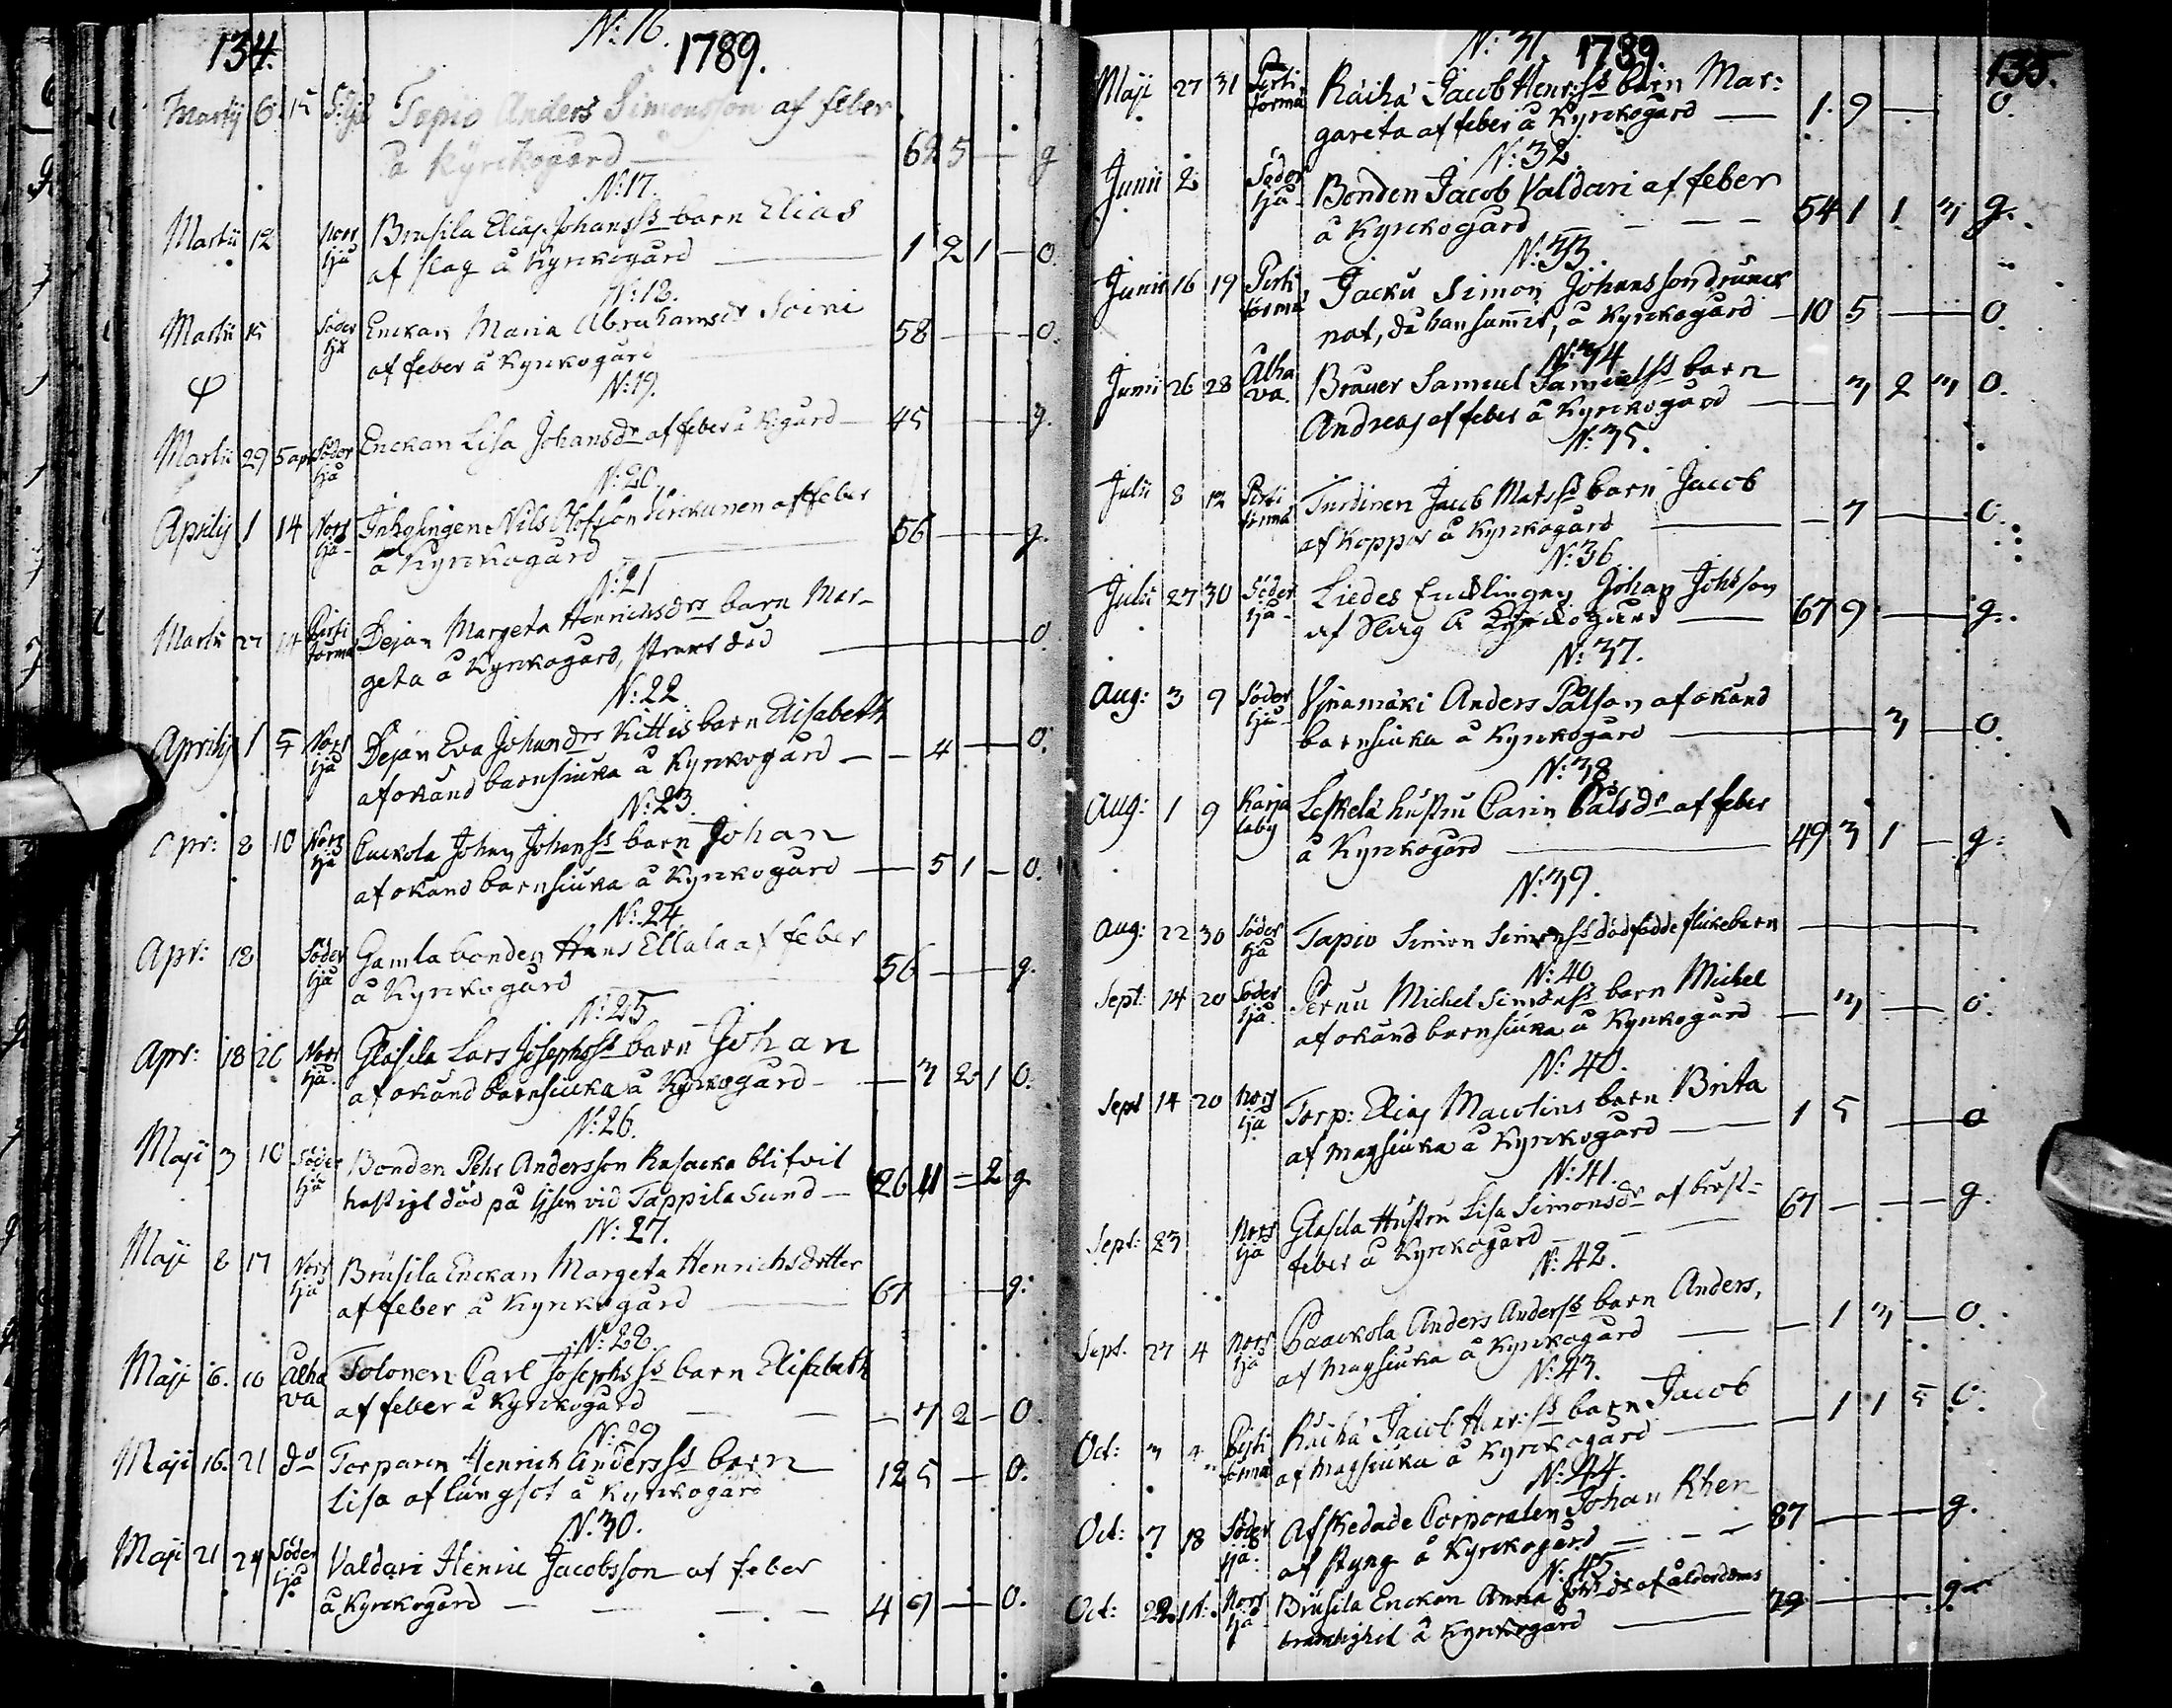 134.
N: 16. 1789.
Martij 6. 15 Tapio Anders Simonsson af feber
å Kyrckogård — 62 5 — g
N: 17.
Martii 12 Norr Ijå Brusila Elias Johanss barn Elias
af slag å Kyrckogård — 1 2 1 — o.
N: 18.
Martii 15 Söder Ijå Enckan Maria Abrahamsdr Soini
af feber å Kyrckogård — 58 — o.
N: 19.
Martii 29 5 apr Söder Ijå Enckan Lisa Johansdr af feber å K:gård — 45 — g.
N: 20.
Aprilij 1 14 Norr Ijå Inhysingen Nils Olofsson af feber
å Kyrckogård — 56 — g.
N: 21
Martii 27 14 Pirti torma Pejan Margeta Henrichsdrs barn Mar-
geta å Kyrckogård, strax död — o
N: 22.
Aprilij 1 5 Norr Ijå Pejan Eva Johansdrs Kittis barn Elisabeth
af okänd barnsiuka å Kyrckogård — — 4 — o.
N: 23.
Apr: 8 10 Norr Ijå Johan Johanss barn Johan
af okänd barnsiuka å Kyrckogård — 5 1 — o.
N: 24.
Apr: 18 Söder Ijå Gamla bonden Hans Ellala af feber
å Kyrckogård — 56 — g.
N: 25
Apr: 18 26 Norr Ijå Glasila Lars Josephss barn Johan
af okänd barnsiuka å Kyrckogård — — 3 2 1 o.
N: 26.
Maji 3 10 Söder Ijå Bonden Pehr Andersson Rasacka blifvit
hastigt död på Ijsen vid Tappila Sund — 26 11 = 2 g
N: 27.
Maji 8 17 Norr Ijå Brusila Enckan Margeta Henrichsdotter
af feber å Kyrckogård — 67 — g.
N: 28.
Maji 6. 10 Alha va Tolonen Carl Josephss barn Elisabeth
af feber å Kyrckogård — — — 7 2 — o.
N: 29
Maji 16. 21 do Torparen Henrich Anderss barn
Lisa af lungsot å Kyrckogård 12 5 — o.
N: 30.
Maji 21 24 Söder Ijå Valdari Henric Jacobsson af feber
å Kyrckogård — — — — 4 9 — o.
135.
N: 31. 1789.
Maji 27 31 Pirti torma Räihä Jacob Henr:ss barn Mar:
gareta af feber å Kyrckogård — 1. 9 — o.
N: 32
Junii 2 Söder Ijå Bonden Jacob Valdari af feber
å Kyrckogård — — — 54 1 1 3 g.
N: 33.
Junii 16 19 Pirti torma Jacku Simon Johansson drunck
nat, då han summit, å Kyrckogård — 10 5 — o.
N: 34
Junii 26 28 Alha va. Brauer Samuel Samuelss barn
Andreas af feber å Kyrckogård — 3 2 3 o.
N: 35.
Julii 8 12 Pirti torma Turdinen Jacob Matss barn Jacob
af koppor å Kyrckogård — — 7 — o.
N: 36
Julii 27 30 Söder Ijå Liedes Johan Johsson
af Slag å Kyrckogård — 67 9 — g.
N: 37.
Aug: 3 9 Söder Ijå Anders Pålson af okänd
barnsiuka å Kyrckogård — 3 — o.
N: 38.
Aug: 1 9 Karja laby Leskelä hustru Carin Pålsdr af feber
å Kyrckogård — 49 3 1 — g.
N: 39.
Aug: 22 30 Söder Ijå Tapio Simon Simonss dödfödde flickebarn —
N: 40
Sept: 14 20 Söder Ijå Pernu Michel Simonss barn Michel
af okänd barnsiuka å Kyrckogård — 3 — o.
N: 40.
Sept 14 20 Norr Ijå Torp: Elias Mautins barn Brita
af magsiuka å Kyrckogård — 1 5 — o
N: 41.
Sept: 23 Norr Ijå Glasila Hustru Lisa Simonsdr af bröst-
feber å Kyrckogård — — 67 — — g.
N: 42.
Sept. 27 4 Norr Ijå Paackola Anders Anderss barn Anders,
af magsiuka å Kyrckogård — — 1 3 — o.
N: 43.
Oct: 3 4 Pirti torma Räihä Jacob Henr:ss barn Jacob
af magsiuka å Kyrckogård — 1 1 5 o.
N: 44.
Oct: 7 18 Söder Ijå Afskedade Corporalen Johan Rhen
af styng å Kyrckogård — — — 87 — g.
N: 45
Oct: 22. Norr Ijå Brusila Enckan Anna Johsdr af ålderdoms
bräcklighet å Kyrckogård — 79 — g